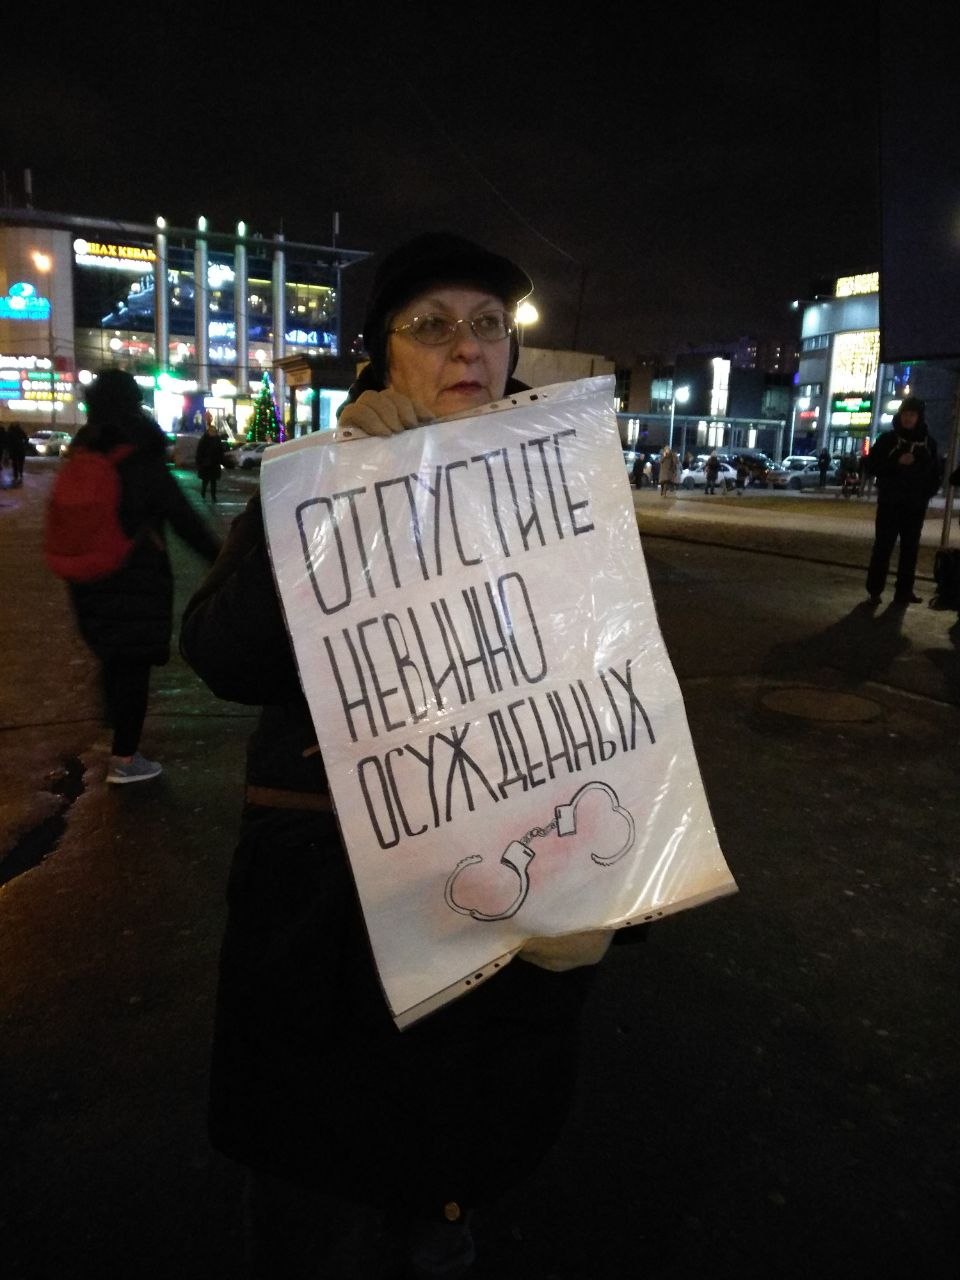 ШАХ КЕБАБ
ОТПУСТИТЕ
НЕВИННО
ОСУЖДЕННЫХ